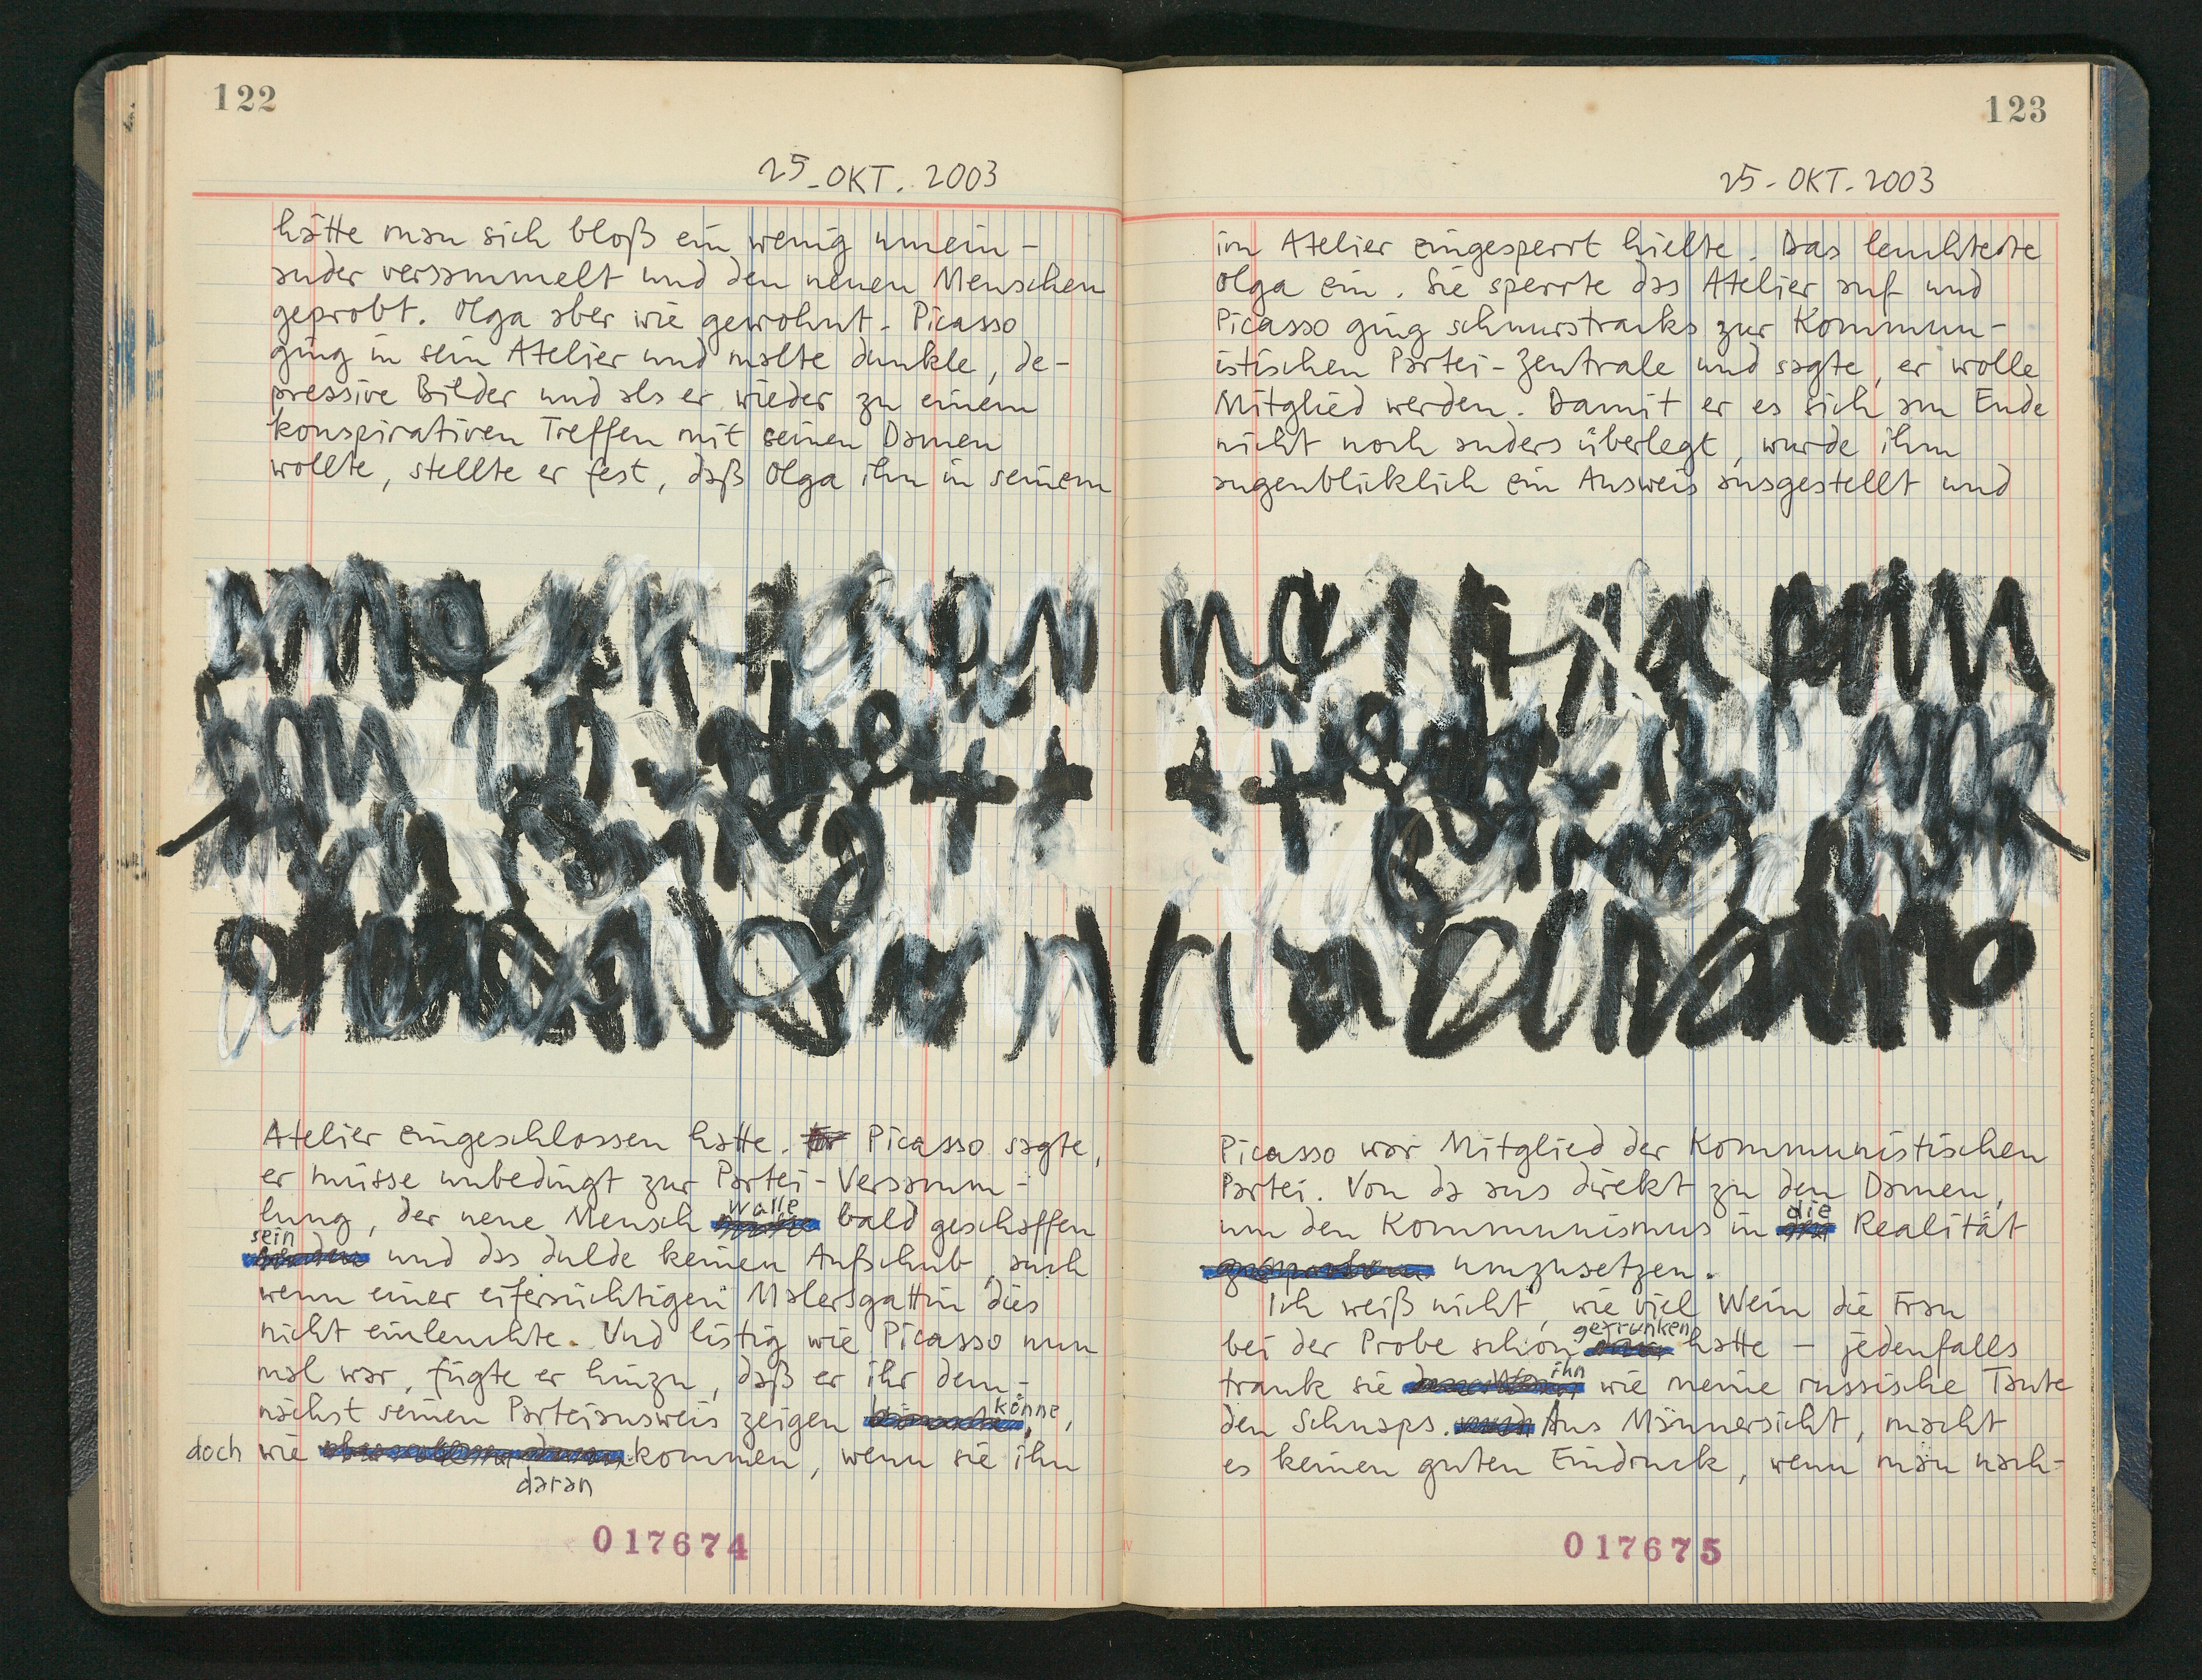 122
25. OKT. 2003
hätte man sich bloß ein wenig umein-
ander versammelt und den neuen Menschen
geprobt. Olga aber wie gewohnt. Picasso
ging in sein Atelier und malte dunkle, de-
pressive Bilder und als er wieder zu einem
konspirativen Treffen mit seinen Damen
wollte, stellte er fest, daß Olga ihn in seinem
Atelier eingeschlossen hatte. Picasso sagte,
er müsse unbedingt zur Partei-Versamm-
lung, der neue Mensch walle bald geschaffen
sein und das dulde keinen Aufschub, auch
wenn einer eifersüchtigen Malersgattin dies
nicht einleuchte. Und listig wie Picasso nun
mal war, fügte er hinzu, daß er ihr dem-
nächst seinen Parteiausweis zeigen könne,
doch wie daran kommen, wenn sie ihn
017674
123
25. OKT. 2003
im Atelier eingesperrt hielte. Das leuchtete
Olga ein. Sie sperrte das Atelier auf und
Picasso ging schnurstracks zur Kommun-
istischen Partei-Zentrale und sagte, er wolle
Mitglied werden. Damit er es sich am Ende
nicht noch anders überlegt, wurde ihm
augenblicklich ein Ausweis ausgestellt und
Picasso war Mitglied der Kommunistischen
Partei. Von da aus direkt zu den Damen,
um den Kommunismus in die Realität
umzusetzen.
Ich weiß nicht, wie viel Wein die Frau
bei der Probe schon getrunken hatte – jedenfalls
trank sie ihn wie meine russische Tante
den Schnaps. Aus Männersicht, macht
es keinen guten Eindruck, wenn man nach-
017675